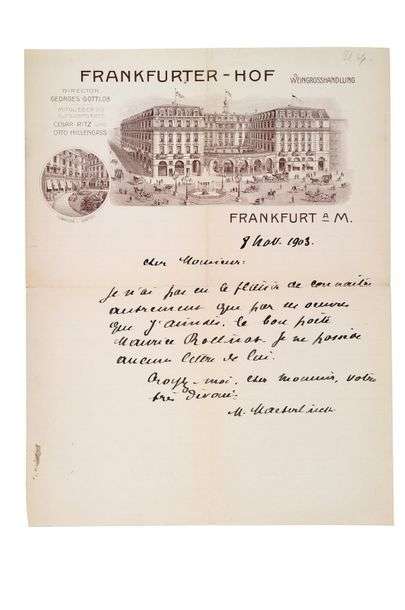 FRANKFURTER-HOF
WEINGROSSHANDLUNG
DIRECTOR
GEORGES GOTTLOB
MITGLIEDER DES
AUFSICHTSRATS
CESAR RITZ UND
OTTO HILLENGASS
FRANKFURT A M.
8 Nov. 1903.
cher Monsieur:
Je n'ai pas eu le plaisir de connaître
autrement que par ses oeuvres
que j'admire, le bon poète
Maurice Rollinat. Je ne possède
aucune lettre de lui.
Croyez-moi, cher monsieur, votre
très dévoué.
M. Maeterlinck